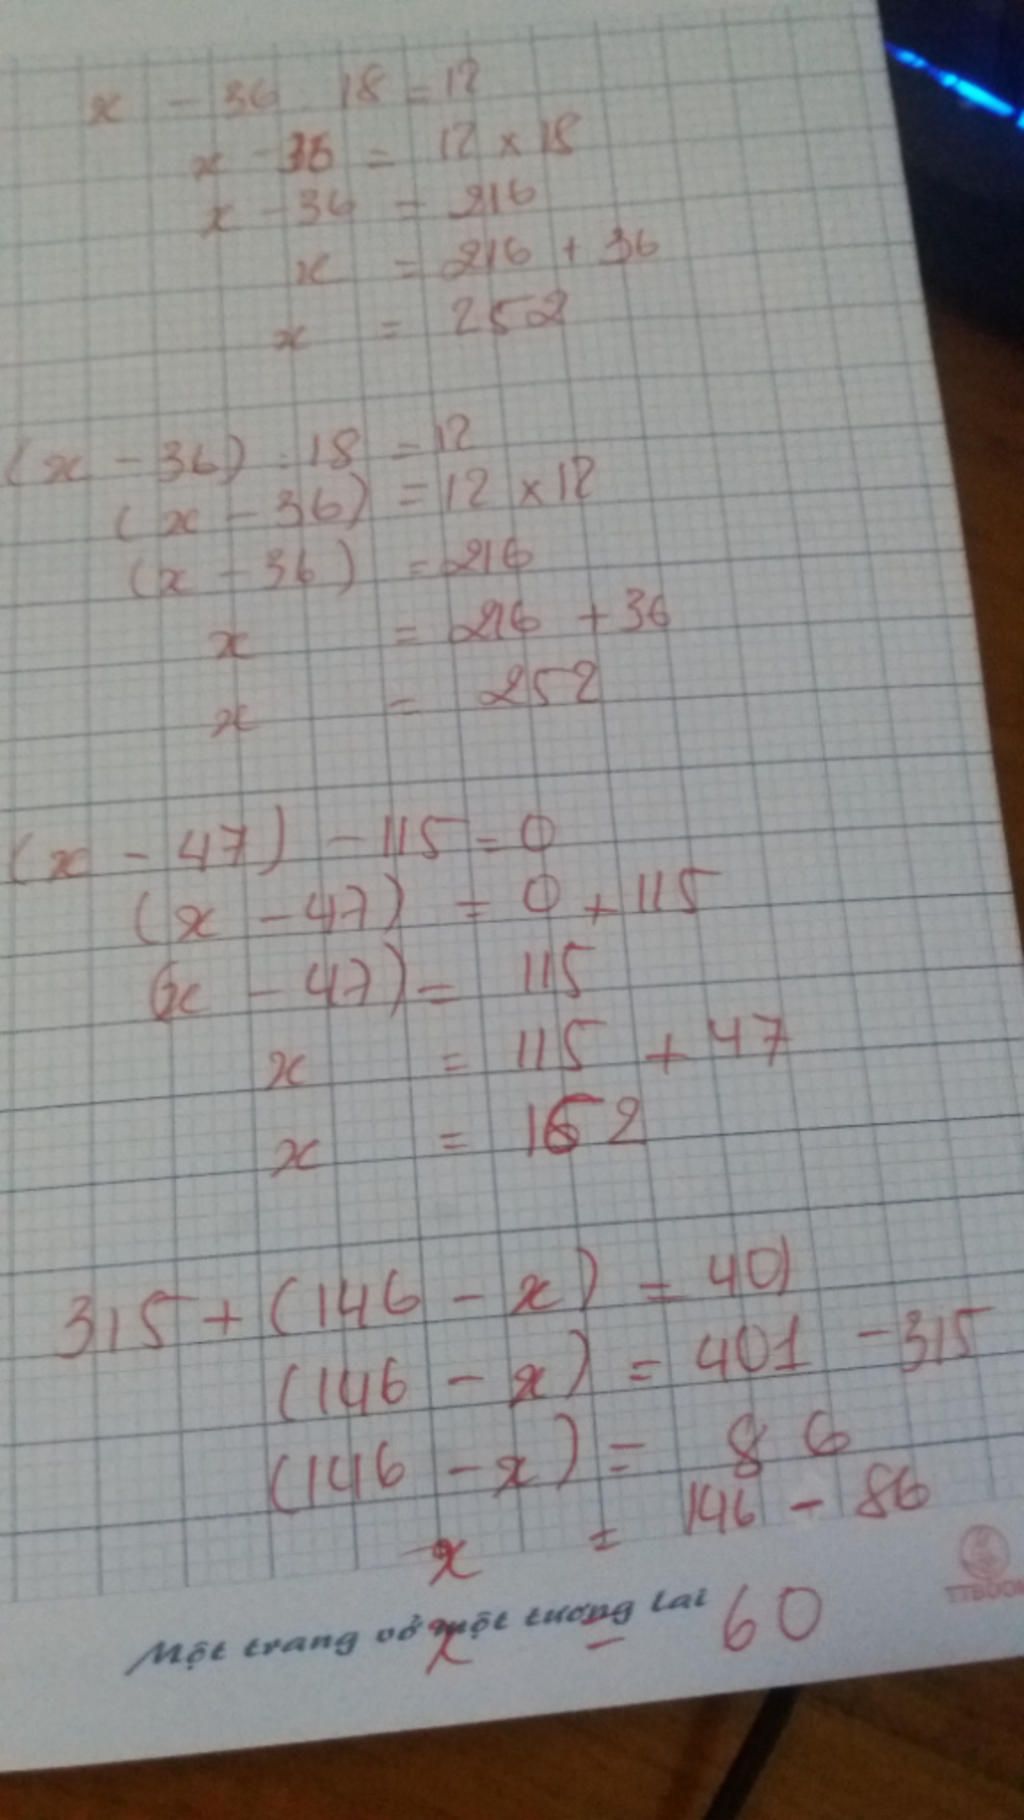 x - 36 18 = 12
x - 36 = 12 x 18
x - 36 = 216
x = 216 + 36
x = 252
(x - 36) : 18 = 12
(x - 36) = 12 x 12
(x - 36) = 216
x = 216 + 36
x = 252
(x - 47) - 115 = 0
(x - 47) = 0 + 115
(x - 47) = 115
x = 115 + 47
x = 162
315 + (146 - x) = 401
(146 - x) = 401 - 315
(146 - x) = 86
x = 146 - 86
x = 60
Một trang vở một tương lai